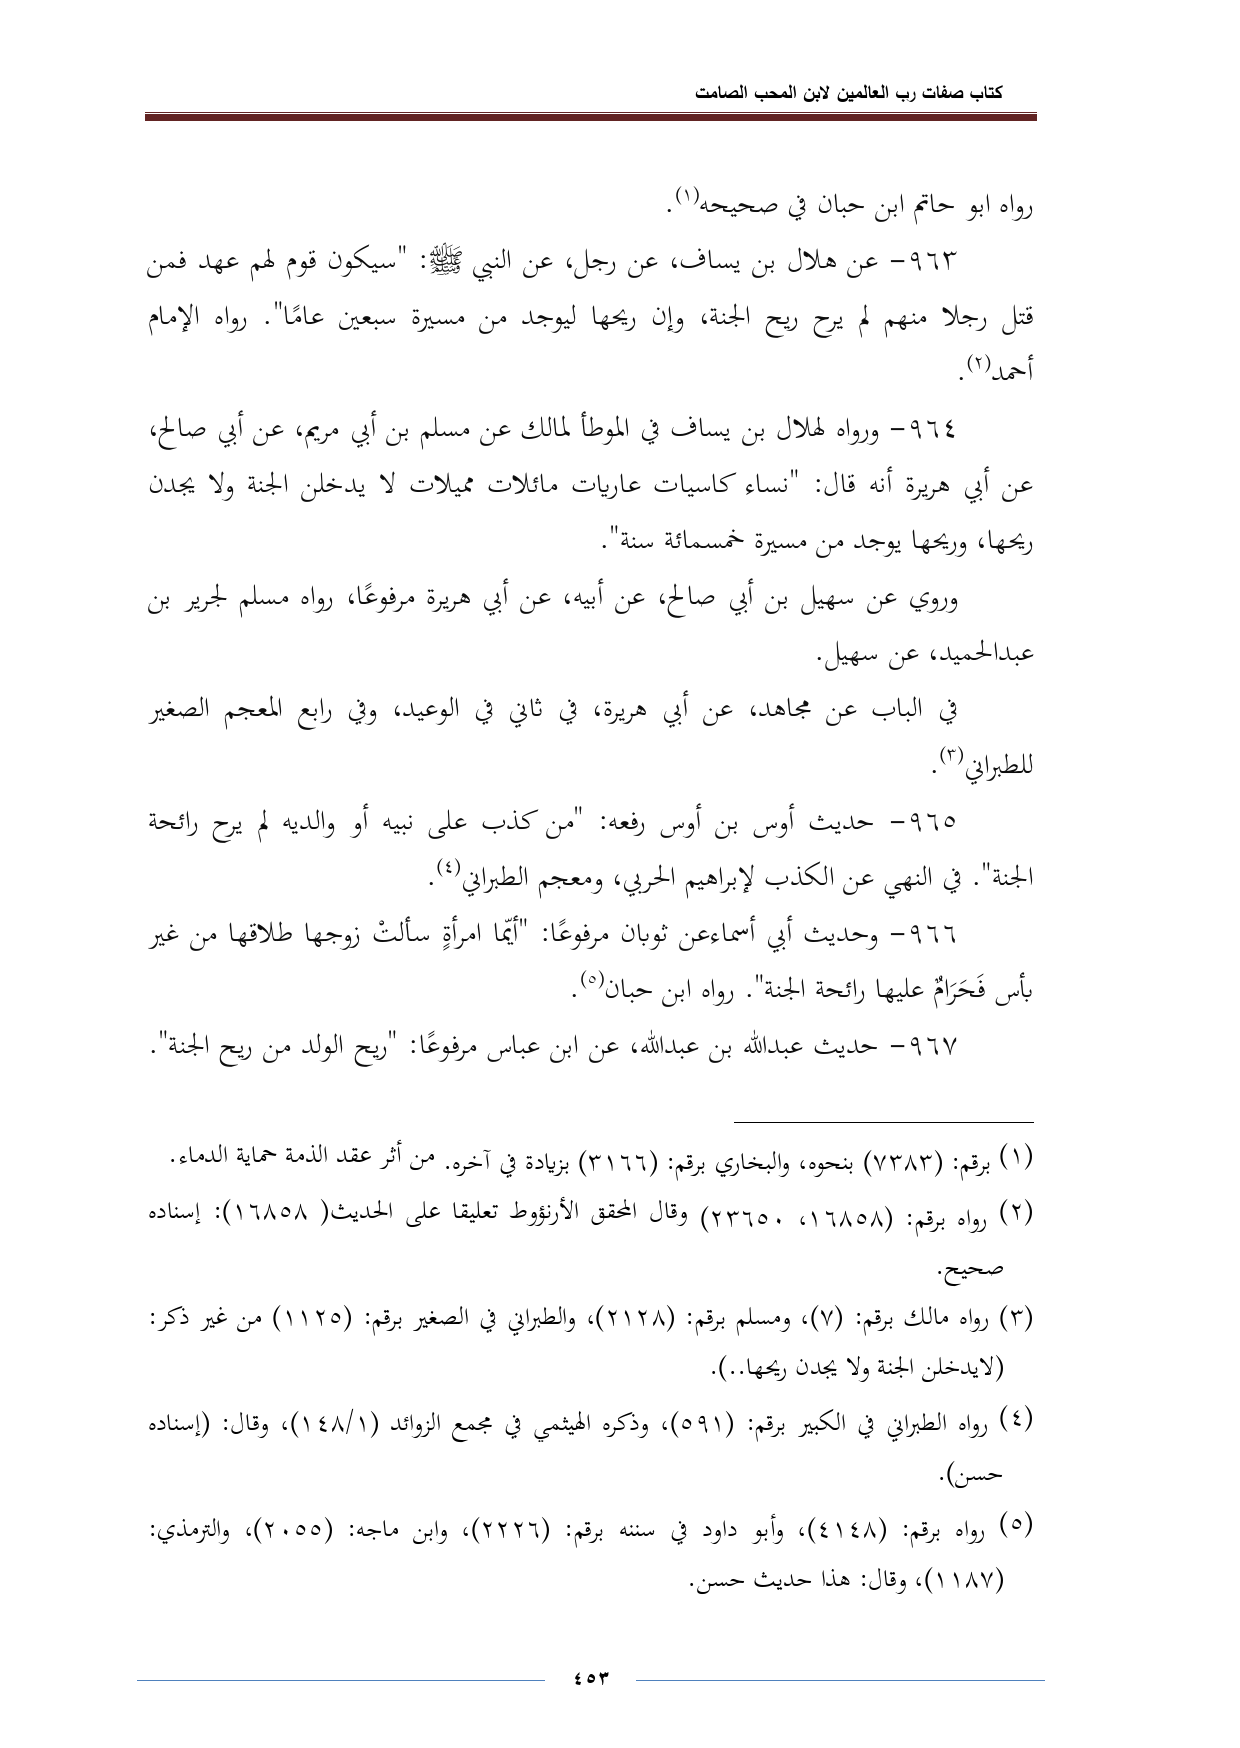 كتاب صفات رب العالمين لابن المحب الصامت
رواه ابو حاتم ابن حبان في صحيحه(١).
٩٦٣- عن هلال بن يساف، عن رجل، عن النبي ﷺ: "سيكون قوم لهم عهد فمن
قتل رجلا منهم لم يرح ريح الجنة، وإن ريحها ليوجد من مسيرة سبعين عامًا". رواه الإمام
أحمد(٢).
٩٦٤- ورواه لهلال بن يساف في الموطأ لمالك عن مسلم بن أبي مريم، عن أبي صالح،
عن أبي هريرة أنه قال: "نساء كاسيات عاريات مائلات مميلات لا يدخلن الجنة ولا يجدن
ريحها، وريحها يوجد من مسيرة خمسمائة سنة".
وروي عن سهيل بن أبي صالح، عن أبيه، عن أبي هريرة مرفوعًا، رواه مسلم لجرير بن
عبدالحميد، عن سهيل.
في الباب عن مجاهد، عن أبي هريرة، في ثاني في الوعيد، وفي رابع المعجم الصغير
للطبراني(٣).
٩٦٥- حديث أوس بن أوس رفعه: "من كذب على نبيه أو والديه لم يرح رائحة
الجنة". في النهي عن الكذب لإبراهيم الحربي، ومعجم الطبراني(٤).
٩٦٦- وحديث أبي أسماءعن ثوبان مرفوعًا: "أيّما امرأةٍ سألتْ زوجها طلاقها من غير
بأس فَحَرَامٌ عليها رائحة الجنة". رواه ابن حبان(٥).
٩٦٧- حديث عبدالله بن عبدالله، عن ابن عباس مرفوعًا: "ريح الولد من ريح الجنة".
(١) برقم: (٧٣٨٣) بنحوه، والبخاري برقم: (٣١٦٦) بزيادة في آخره. من أثر عقد الذمة حماية الدماء.
(٢) رواه برقم: (١٦٨٥٨، ٢٣٦٥٠) وقال المحقق الأرنؤوط تعليقا على الحديث( ١٦٨٥٨): إسناده
صحيح.
(٣) رواه مالك برقم: (٧)، ومسلم برقم: (٢١٢٨)، والطبراني في الصغير برقم: (١١٢٥) من غير ذكر:
(لايدخلن الجنة ولا يجدن ريحها..).
(٤) رواه الطبراني في الكبير برقم: (٥٩١)، وذكره الهيثمي في مجمع الزوائد (١٤٨/١)، وقال: (إسناده
حسن).
(٥) رواه برقم: (٤١٤٨)، وأبو داود في سننه برقم: (٢٢٢٦)، وابن ماجه: (٢٠٥٥)، والترمذي:
(١١٨٧)، وقال: هذا حديث حسن.
٤٥٣